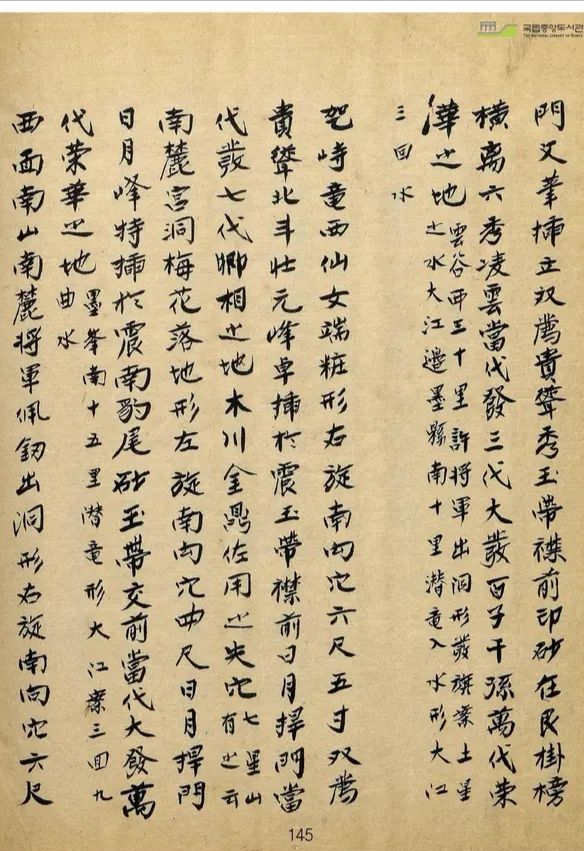 국립중앙도서관
THE NATIONAL LIBRARY OF KOREA
門文筆揷立双薦貴聳秀玉帶襟前印砂在艮掛榜
橫离六秀凌雲當代發三代大發百子千孫萬代榮
華之地
雲谷西三十里許將軍出洞形發旗案土星
之水大江邉墨縣南十里潜竜入水形大江
三回水
峙竜西仙女端粧形右旋南向穴六尺五寸双薦
貴聳北斗壯元峰卓揷於震玉帶襟前日月捍門當
代發七代卿相之地木川金鼎佐用之失穴
七星山
有之云
南麓宮洞梅花落地形左旋南向穴四尺日月捍門
日月峰特揷於震南豹尾砂玉帶交前當代大發萬
代榮華之地
墨峯南十五里潜竜形大江案三回九
曲水
西面南山南麓將軍佩釼出洞形右旋南向穴六尺
145